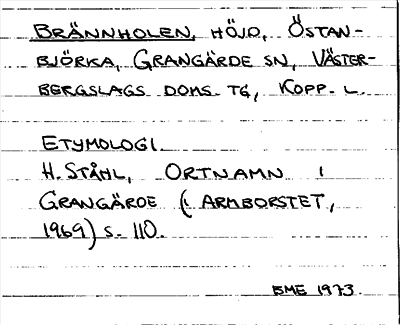 BRÄNNHOLEN, HÖJD, ÖSTAN-
BJÖRKA, GRANGÄRDE SN, VÄSTER-
BERGSLAGS DOMS. TG, KOPP. L.
ETYMOLOGI.
H. STÅHL, ORTNAMN I
GRANGÄRDE (I ARMBORSTET,
1969) S. 110.
BME 1973.